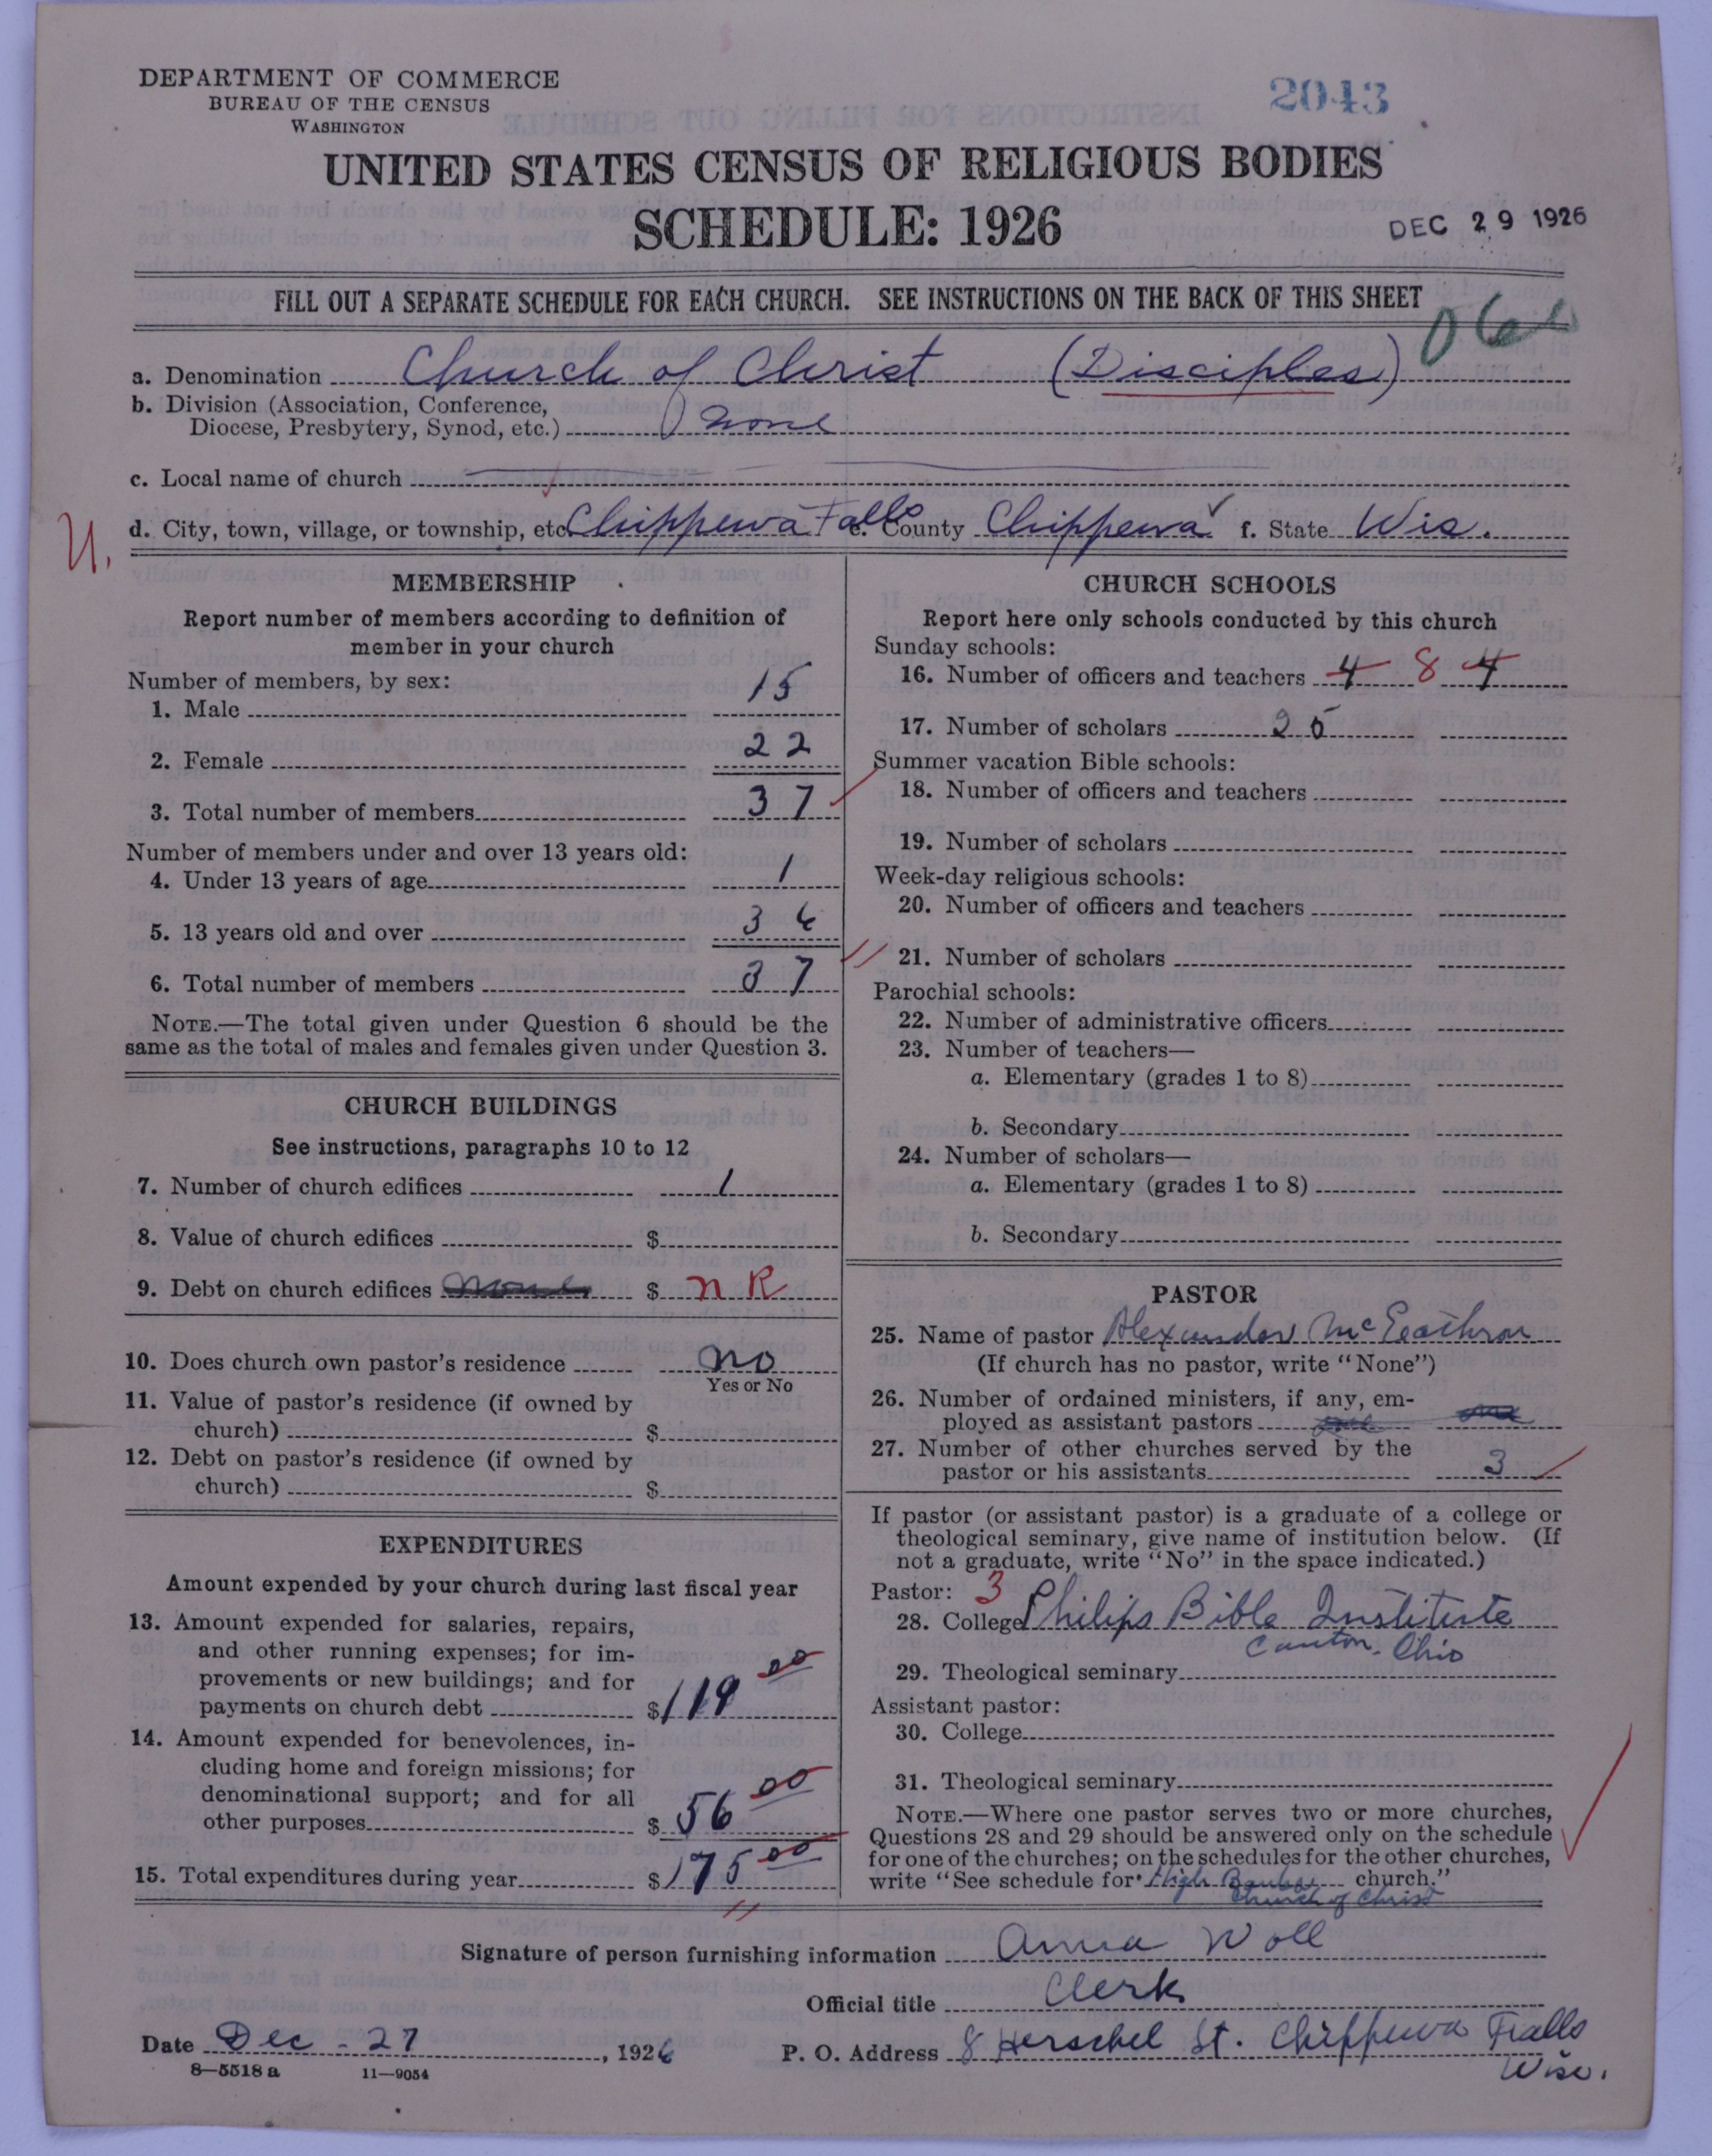 DEPARTMENT OF COMMERCE
BUREAU OF THE CENSUS
WASHINGTON
2043
UNITED STATES CENSUS OF RELIGIOUS BODIES
SCHEDULE: 1926
DEC 29 1926
FILL OUT A SEPARATE SCHEDULE FOR EACH CHURCH. SEE INSTRUCTIONS ON THE BACK OF THIS SHEET
a. Denomination Church of Christ (Disciples)
b. Division (Association, Conference,
Diocese, Presbytery, Synod, etc.) none
c. Local name of church
U.
d. City, town, village, or township, etc. Chippewa Falls e. County Chippewa f. State Wis.
MEMBERSHIP
Report number of members according to definition of
member in your church
Number of members, by sex:
1. Male 15
2. Female 22
3. Total number of members 37
Number of members under and over 13 years old:
4. Under 13 years of age 1
5. 13 years old and over 36
6. Total number of members 37
NOTE.—The total given under Question 6 should be the
same as the total of males and females given under Question 3.
CHURCH BUILDINGS
See instructions, paragraphs 10 to 12
7. Number of church edifices 1
8. Value of church edifices $
9. Debt on church edifices none $ n R
10. Does church own pastor's residence no
Yes or No
11. Value of pastor's residence (if owned by
church) $
12. Debt on pastor's residence (if owned by
church) $
EXPENDITURES
Amount expended by your church during last fiscal year
13. Amount expended for salaries, repairs,
and other running expenses; for im-
provements or new buildings; and for
payments on church debt $119 00
14. Amount expended for benevolences, in-
cluding home and foreign missions; for
denominational support; and for all
other purposes $56 00
15. Total expenditures during year $175 00
CHURCH SCHOOLS
Report here only schools conducted by this church
Sunday schools:
16. Number of officers and teachers 4 8 4
17. Number of scholars 25
Summer vacation Bible schools:
18. Number of officers and teachers
19. Number of scholars
Week-day religious schools:
20. Number of officers and teachers
21. Number of scholars
Parochial schools:
22. Number of administrative officers
23. Number of teachers—
a. Elementary (grades 1 to 8)
b. Secondary
24. Number of scholars—
a. Elementary (grades 1 to 8)
b. Secondary
PASTOR
25. Name of pastor Alexander McEachron
(If church has no pastor, write "None")
26. Number of ordained ministers, if any, em-
ployed as assistant pastors
27. Number of other churches served by the
pastor or his assistants 3
If pastor (or assistant pastor) is a graduate of a college or
theological seminary, give name of institution below. (If
not a graduate, write "No" in the space indicated.)
Pastor: 3
28. College Philips Bible Institute
Canton. Ohio
29. Theological seminary
Assistant pastor:
30. College
31. Theological seminary
NOTE.—Where one pastor serves two or more churches,
Questions 28 and 29 should be answered only on the schedule
for one of the churches; on the schedules for the other churches,
write "See schedule for High Banks church."
Church of Christ
Signature of person furnishing information Anna Woll
Official title Clerk
Date Dec - 27, 1926
P. O. Address 8 Herschel St. Chippewa Falls
Wisc.
8—5518 a 11—9054